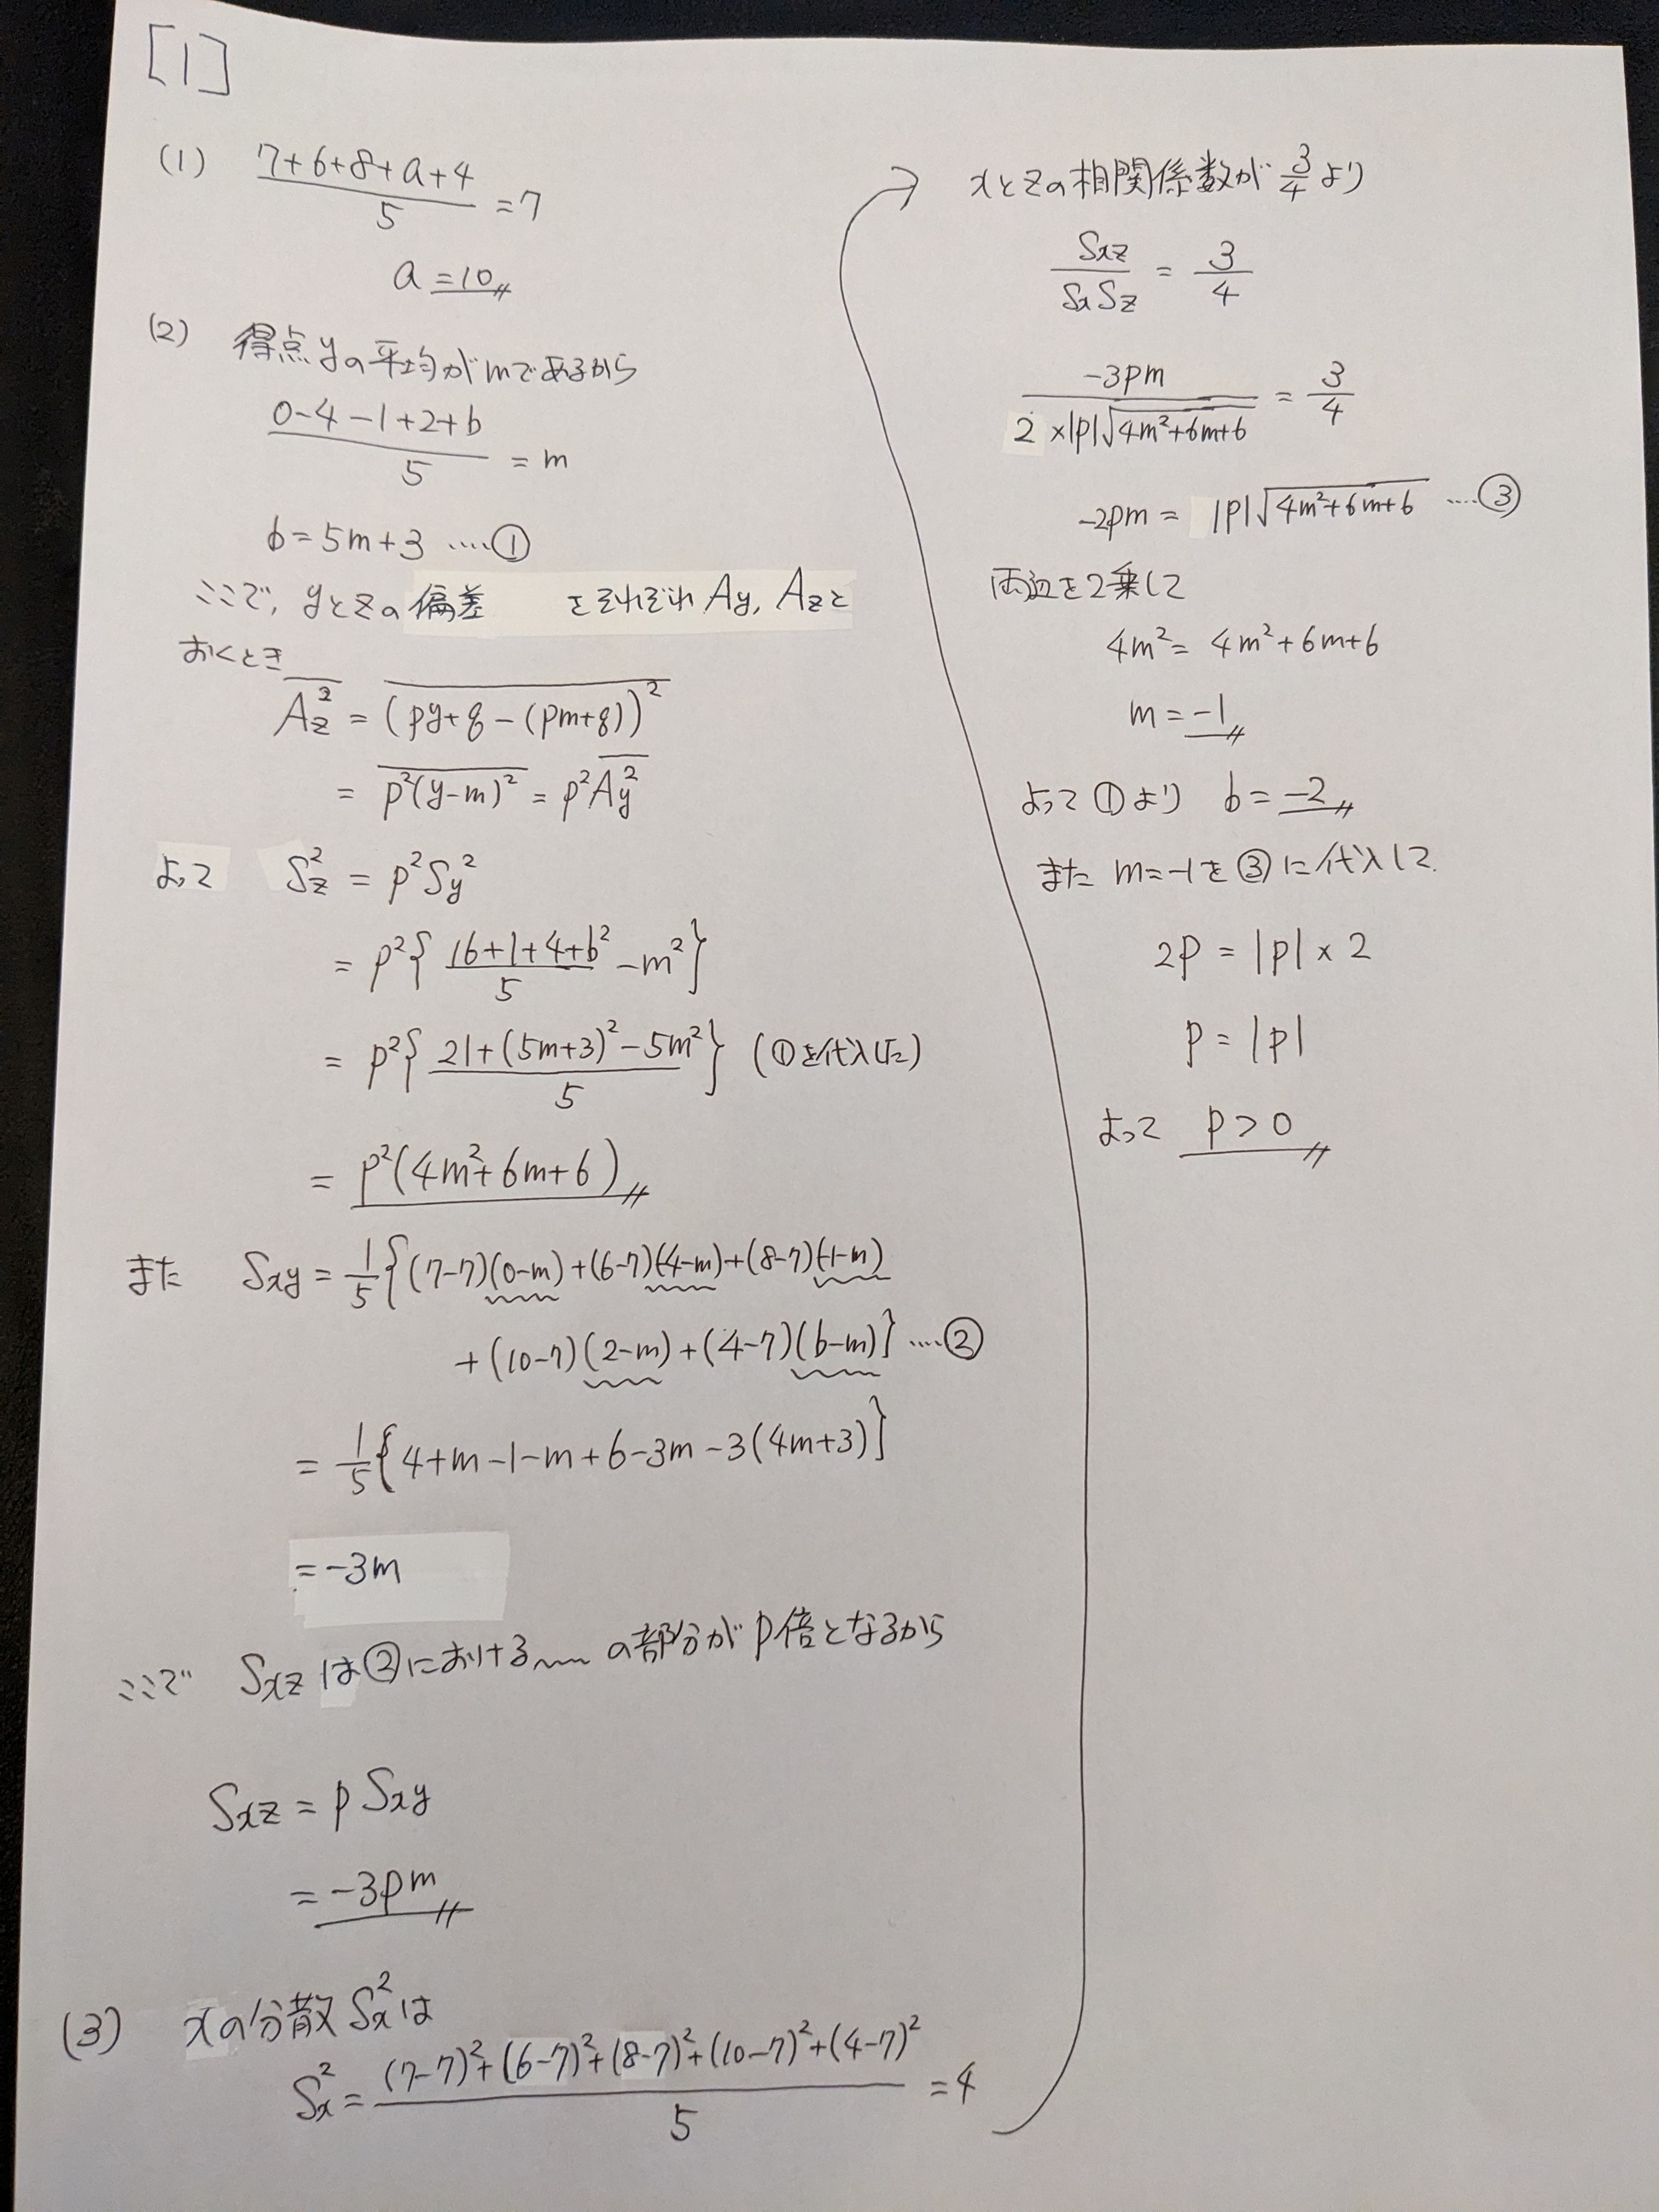 [1]
(1) (7+6+8+a+4)/5 = 7
a = 10
(2) 得点yの平均がmであるから
(0-4-1+2+b)/5 = m
b = 5m+3 ····①
ここで, yとzの偏差 をそれぞれ Ay, Azと
おくとき
\overline{A_z^2} = \overline{(py+q-(pm+q))^2}
= \overline{p^2(y-m)^2} = p^2\overline{A_y^2}
よって S_z^2 = p^2S_y^2
= p^2{(16+1+4+b^2)/5 - m^2}
= p^2{(21+(5m+3)^2-5m^2)/5} (①を代入した)
= p^2(4m^2+6m+6)
また Sxy = 1/5{(7-7)(0-m)+(6-7)(-4-m)+(8-7)(-1-m)
+(10-7)(2-m)+(4-7)(b-m)} ····②
= 1/5{4+m-1-m+6-3m-3(4m+3)}
= -3m
ここで Sxzは②における﹏﹏の部分がp倍となるから
Sxz = p Sxy
= -3pm
(3) xの分散 S_x^2は
S_x^2 = ((7-7)^2+(6-7)^2+(8-7)^2+(10-7)^2+(4-7)^2)/5 = 4
xとzの相関係数が 3/4 より
Sxz/(SxSz) = 3/4
-3pm/(2×|p|√(4m^2+6m+6)) = 3/4
-2pm = |p|√(4m^2+6m+6) ····③
両辺を2乗して
4m^2 = 4m^2+6m+6
m = -1
よって①より b = -2
また m=-1を③に代入して
2p = |p|×2
p = |p|
よって p>0